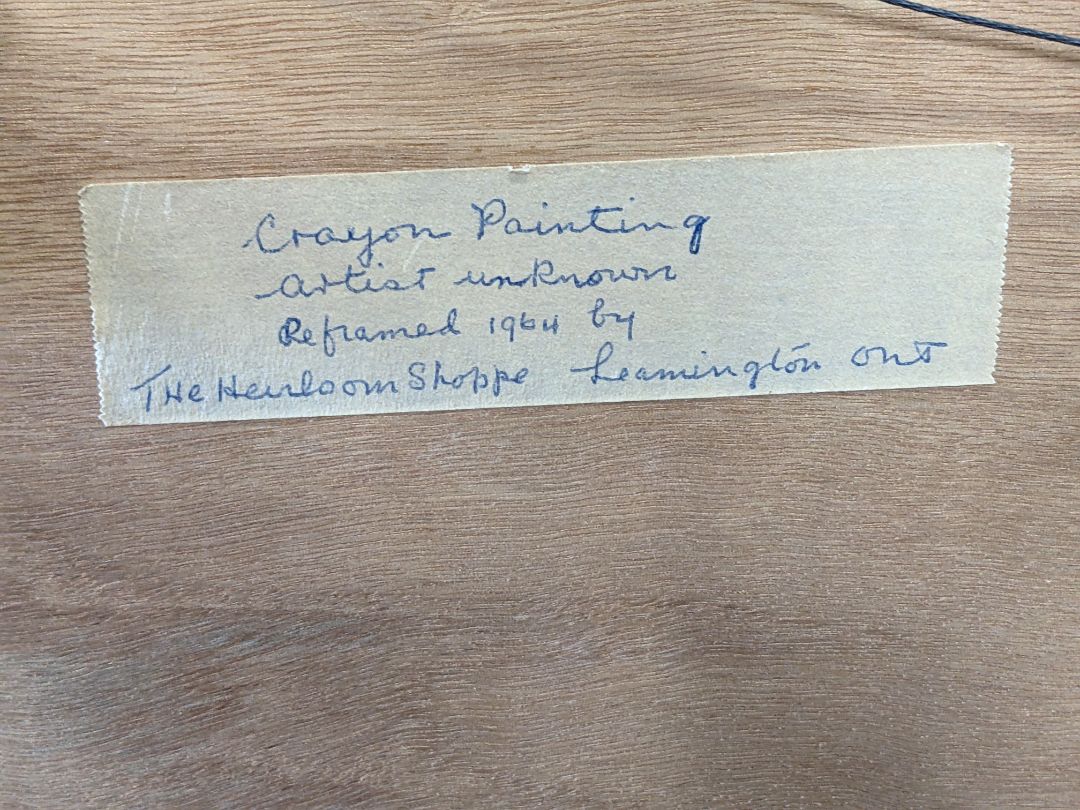 Crayon Painting
Artist unknown
Reframed 1964 by
THe Heirloom Shoppe Leamington Ont